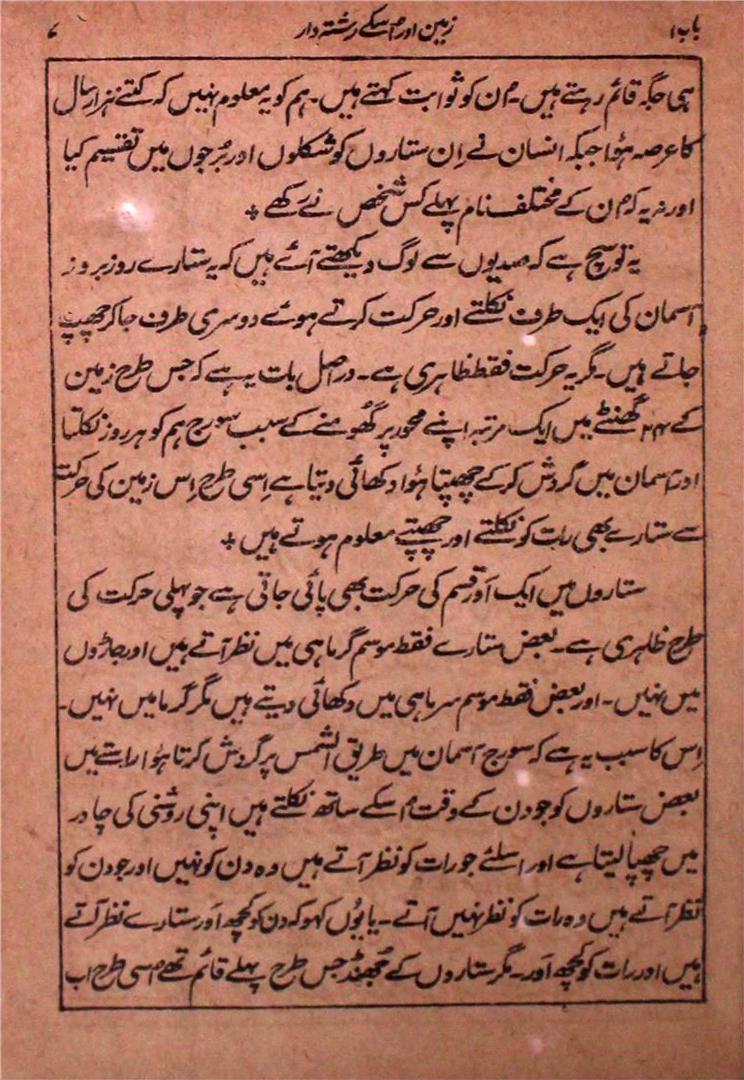 باب ۱ زمین اور اُسکے رشتہ دار ۷
ہی جگہ قائم رہتے ہیں۔ اُن کو ثوابت کہتے ہیں۔ ہم کو یہ معلوم نہیں کہ کتنے ہزار سال
کا عرصہ ہؤا جبکہ انسان نے اِن ستاروں کو شکلوں اور بُرجوں میں تقسیم کیا
اور نہ یہ کہ اُن کے مختلف نام پہلے کس شخص نے رکھے +
یہ تو سچ ہے کہ صدیوں سے لوگ دیکھتے آئے ہیں کہ یہ ستارے روز بروز
آسمان کی ایک طرف نکلتے اور حرکت کرتے ہوئے دوسری طرف جا کر چھپ
جاتے ہیں۔ مگر یہ حرکت فقط ظاہری ہے۔ دراصل بات یہ ہے کہ جس طرح زمین
کے ۲۴ گھنٹے میں ایک مرتبہ اپنے محور پر گھُومنے کے سبب سورج ہم کو ہر روز نکلتا
اور آسمان میں گردش کرکے چھپتا ہؤا دکھائی دیتا ہے اِسی طرح اِس زمین کی حرکت
سے ستارے بھی رات کو نکلتے اور چھپتے معلوم ہوتے ہیں +
ستاروں میں ایک اَور قسم کی حرکت بھی پائی جاتی ہے جو پہلی حرکت کی
طرح ظاہری ہے۔ بعض ستارے فقط موسم گرما ہی میں نظر آتے ہیں اور جاڑوں
میں نہیں۔ اور بعض فقط موسم سرما ہی میں دکھائی دیتے ہیں مگر گرما میں نہیں۔
اِس کا سبب یہ ہے کہ سورج آسمان میں طریق الشمس پر گردش کرتا ہؤا راستے میں
بعض ستاروں کو جو دن کے وقت اُسکے ساتھ نکلتے ہیں اپنی روشنی کی چادر
میں چھپا لیتا ہے اور اسلئے جو رات کو نظر آتے ہیں وہ دن کو نہیں اور جو دن کو
نظر آتے ہیں وہ رات کو نظر نہیں آتے۔ یا یوُں کہو کہ دن کو کچھ اَور ستارے نظر آتے
ہیں اور رات کو کچھ اَور۔ مگر ستاروں کے جھُنڈ جس طرح پہلے قائم تھے اُسی طرح اب